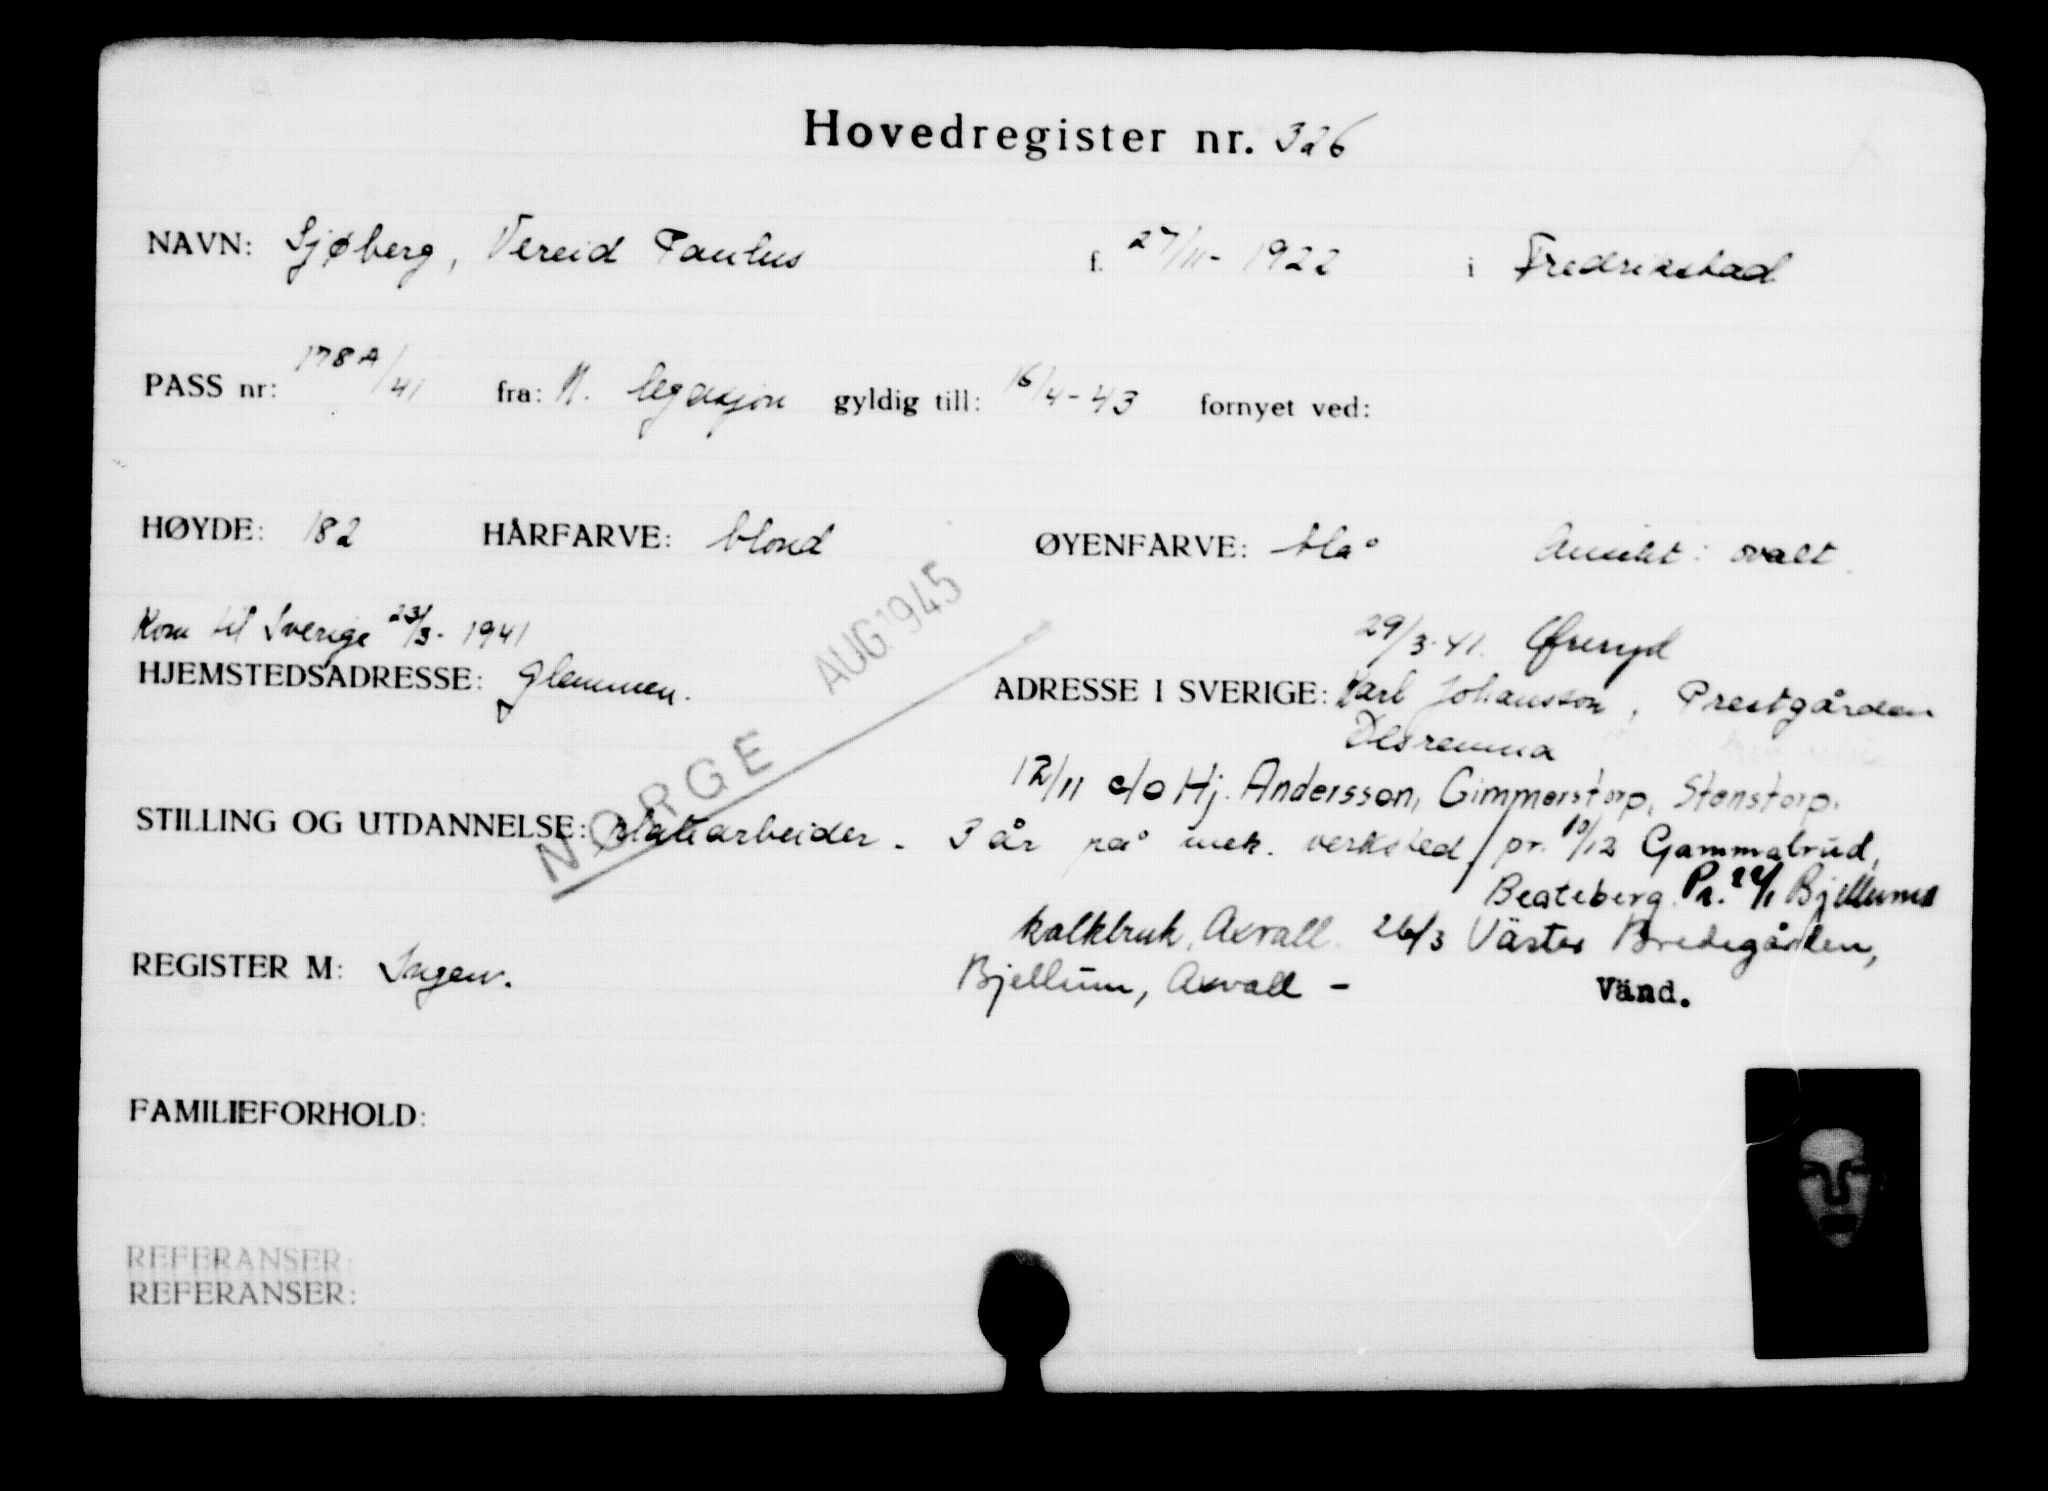 Hovedregister nr. 326
NAVN: Sjøberg, Vereid Paulus f. 27/11- 1922 i Fredrikstad
PASS nr: 178A/41 fra: N. legasjon gyldig till: 16/4-43 fornyet ved:
HØYDE: 182 HÅRFARVE: blond ØYENFARVE: blå Ansikt: ovalt.
Kom til Sverige 23/3- 1941
29/3-41. Øreryd
HJEMSTEDSADRESSE: Glemmen.
ADRESSE I SVERIGE: Karl Johansson, Prestgården
AUG 1945
NORGE
12/11 c/o Hj. Andersson, Gimmerstorp, Stenstorp.
STILLING OG UTDANNELSE: Platearbeider. 3 år på mek. verksted / pr. 10/12 Gammalrud,
Beateberg. Pr. 22/1 Bjellums
kalkbruk, Axvall. 26/3 Väster Bredegården,
REGISTER M: Ingen.
Bjellum, Axvall -
Vänd.
FAMILIEFORHOLD:
REFERANSER:
REFERANSER: